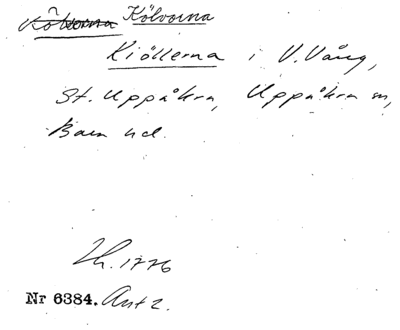 Kölvorna
Kiöllerna i V. Vång,
St. Uppåkra, Uppåkra sn,
Bara hd.
Lh. 1776
Nr 6384. Akt 2.